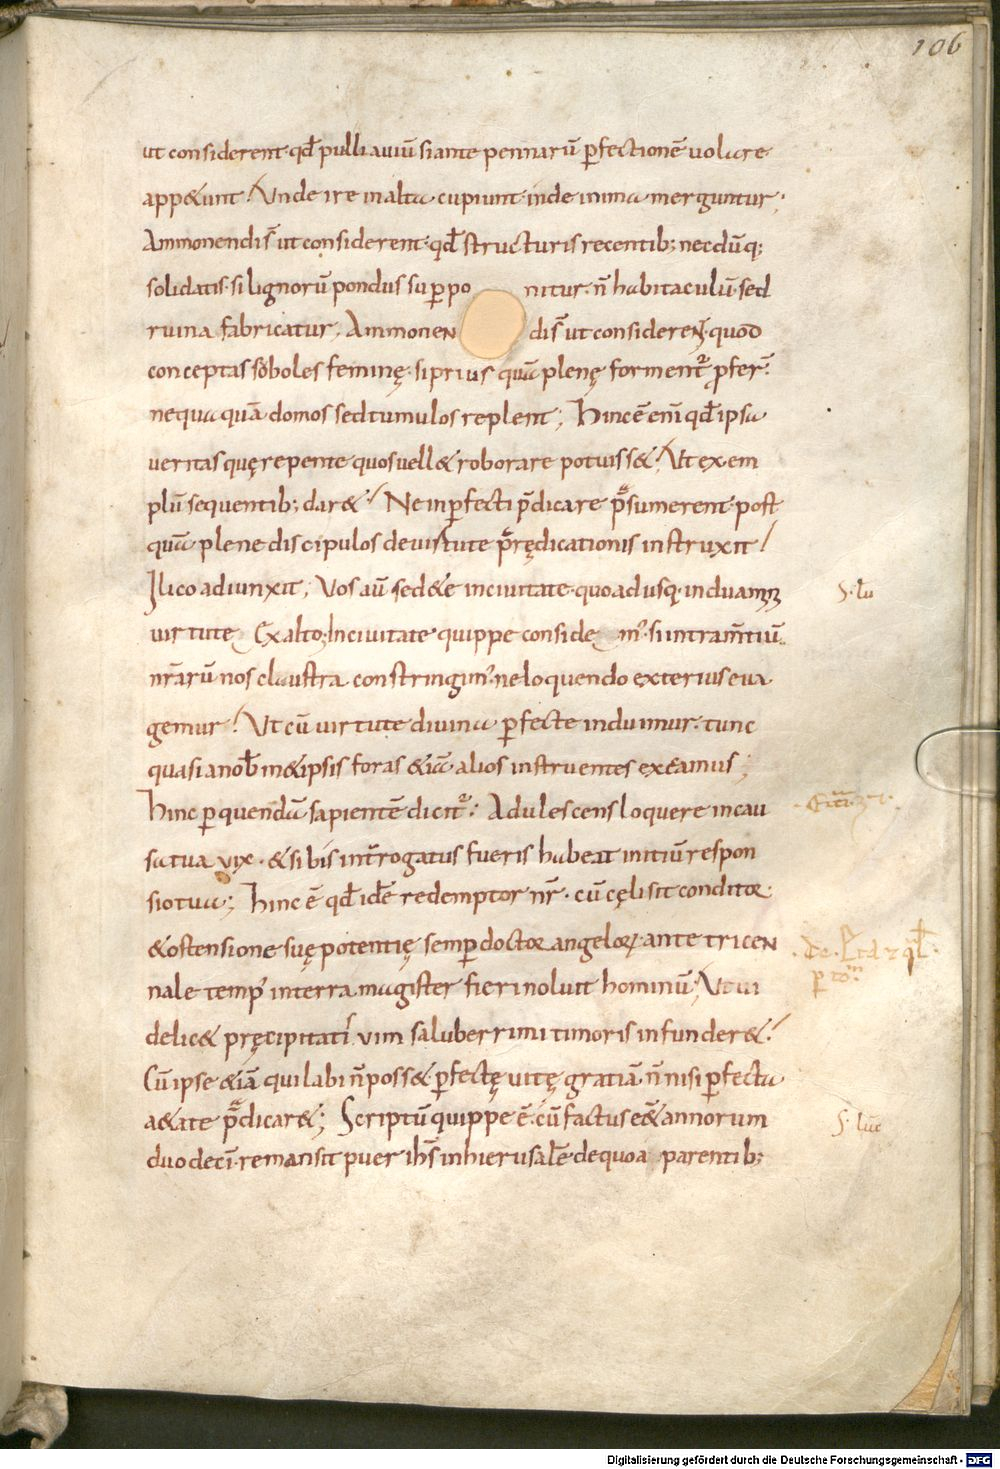 106
ut considerent· qđ pulli auiū si ante pennarū ꝑfectionē uolare
app&unt! Unde ire in alta cupiunt· inde in ima merguntur;
Ammonendis̄ ut considerent· qđ structuris recentib; necdūq;
solidatis· si lignorū pondus suꝑponitur· n̄ habitaculū· sed
ruina fabricatur; Ammonendis̄ ut considerent· quod
conceptas soboles feminę· si prius quā plenę forment᷑ ꝓfer̄·
nequaquā domos sed tumulos replent; Hinc ē enī qđ ipsa
ueritas quę repente quos uell& roborare potuiss&! Ut exem
plū sequentib; dar&! Ne inꝑfecti p̄dicare p̄sumerent· post
quā plene discipulos de uirtute p̄ędicationis instruxit!
Ilico adiunxit; Vos aū sed&e in ciuitate· quoadusq· induamī
uirtute Ex alto; In ciuitate quippe conside m᷒· si intra m̄tiū
nr̄arū nos claustra constringim᷒· ne loquendo exterius eua
gemur! Ut cū uirtute diuina ꝑfecte induimur· tunc
quasi a nob̄ m&ipsis foras &iā alios instruentes exeamus;
Hinc ꝑ quendā sapientē dicit᷑: Adulescens loquere in cau
sa tua uix· & si bis int̄rogatus fueris habeat initiū respon
sio tua; Hinc ē qđ idē redemptor nr̄· cū cęli sit conditor
& ostensione suę potentię semꝑ doctor angeloꝝ· ante tricen
nale temp᷒ in terra magister fieri noluit hominū; Ut ui
delic& pręcipitatī uim saluberrimi timoris infunder&!
Cū ipse &iā qui labi n̄ poss& ꝑfectę uitę gratiā n̄ nisi ꝑfecta
a&ate p̄dicar&; Scriptū quippe ē· cū factus e&̄ annorum
duodecī· remansit puer ih̄s in hierusalē· de quo a parentib;
S· lu
S· luc
Digitalisierung gefördert durch die Deutsche Forschungsgemeinschaft - DFG